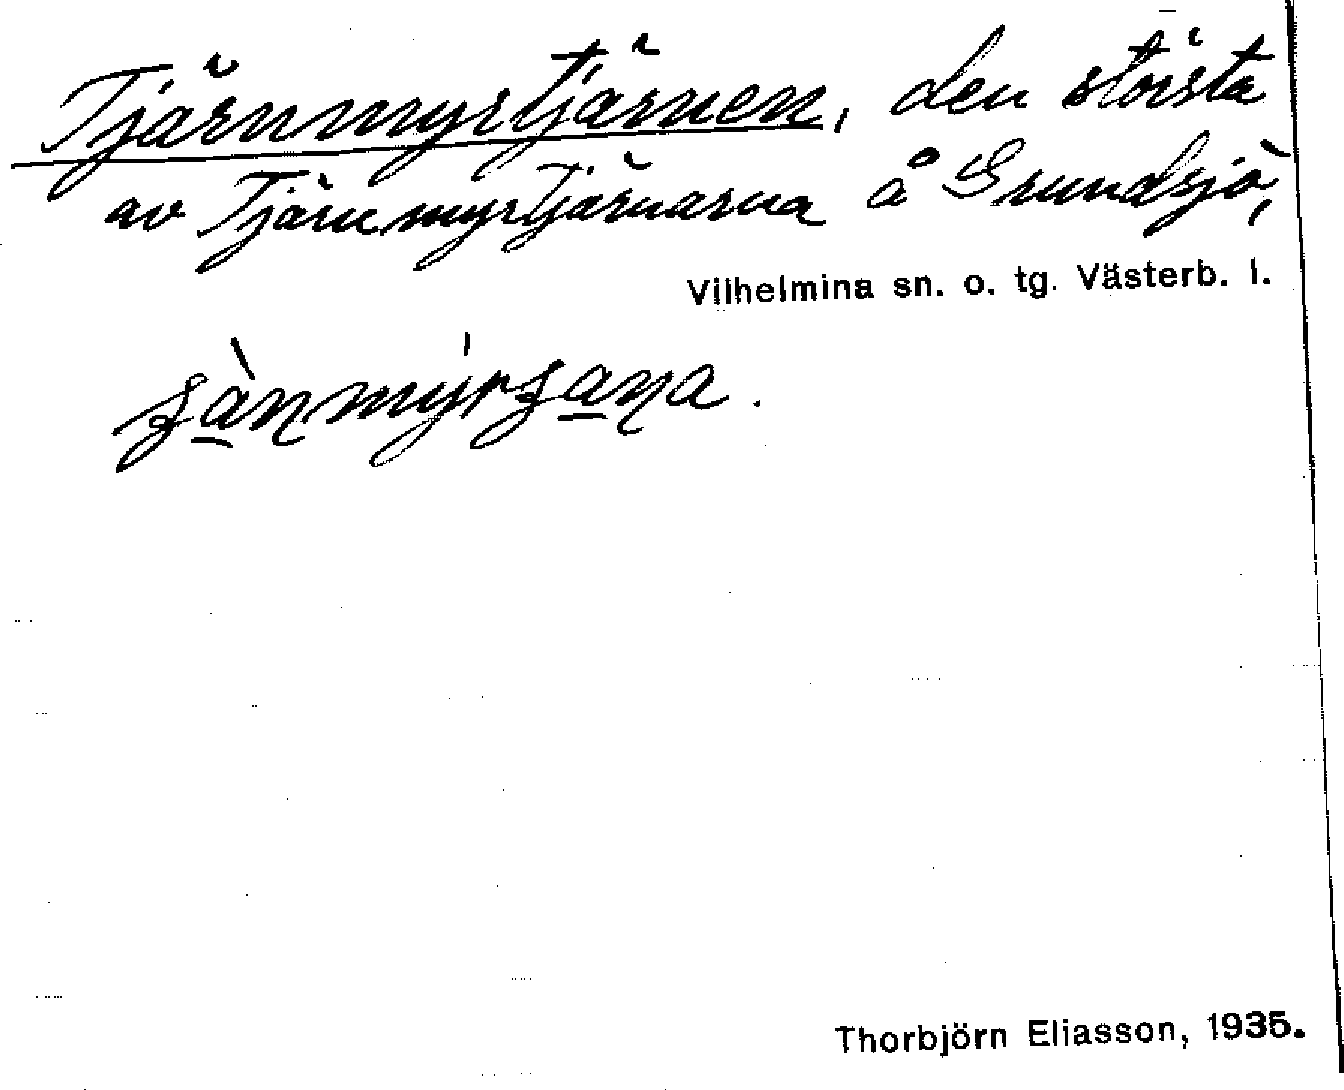 Tjärnmyrtjärnen, den största
av Tjärnmyrtjärnarna å Grundsjö,
Vilhelmina sn. o. tg. Västerb. l.
Thorbjörn Eliasson, 1935.